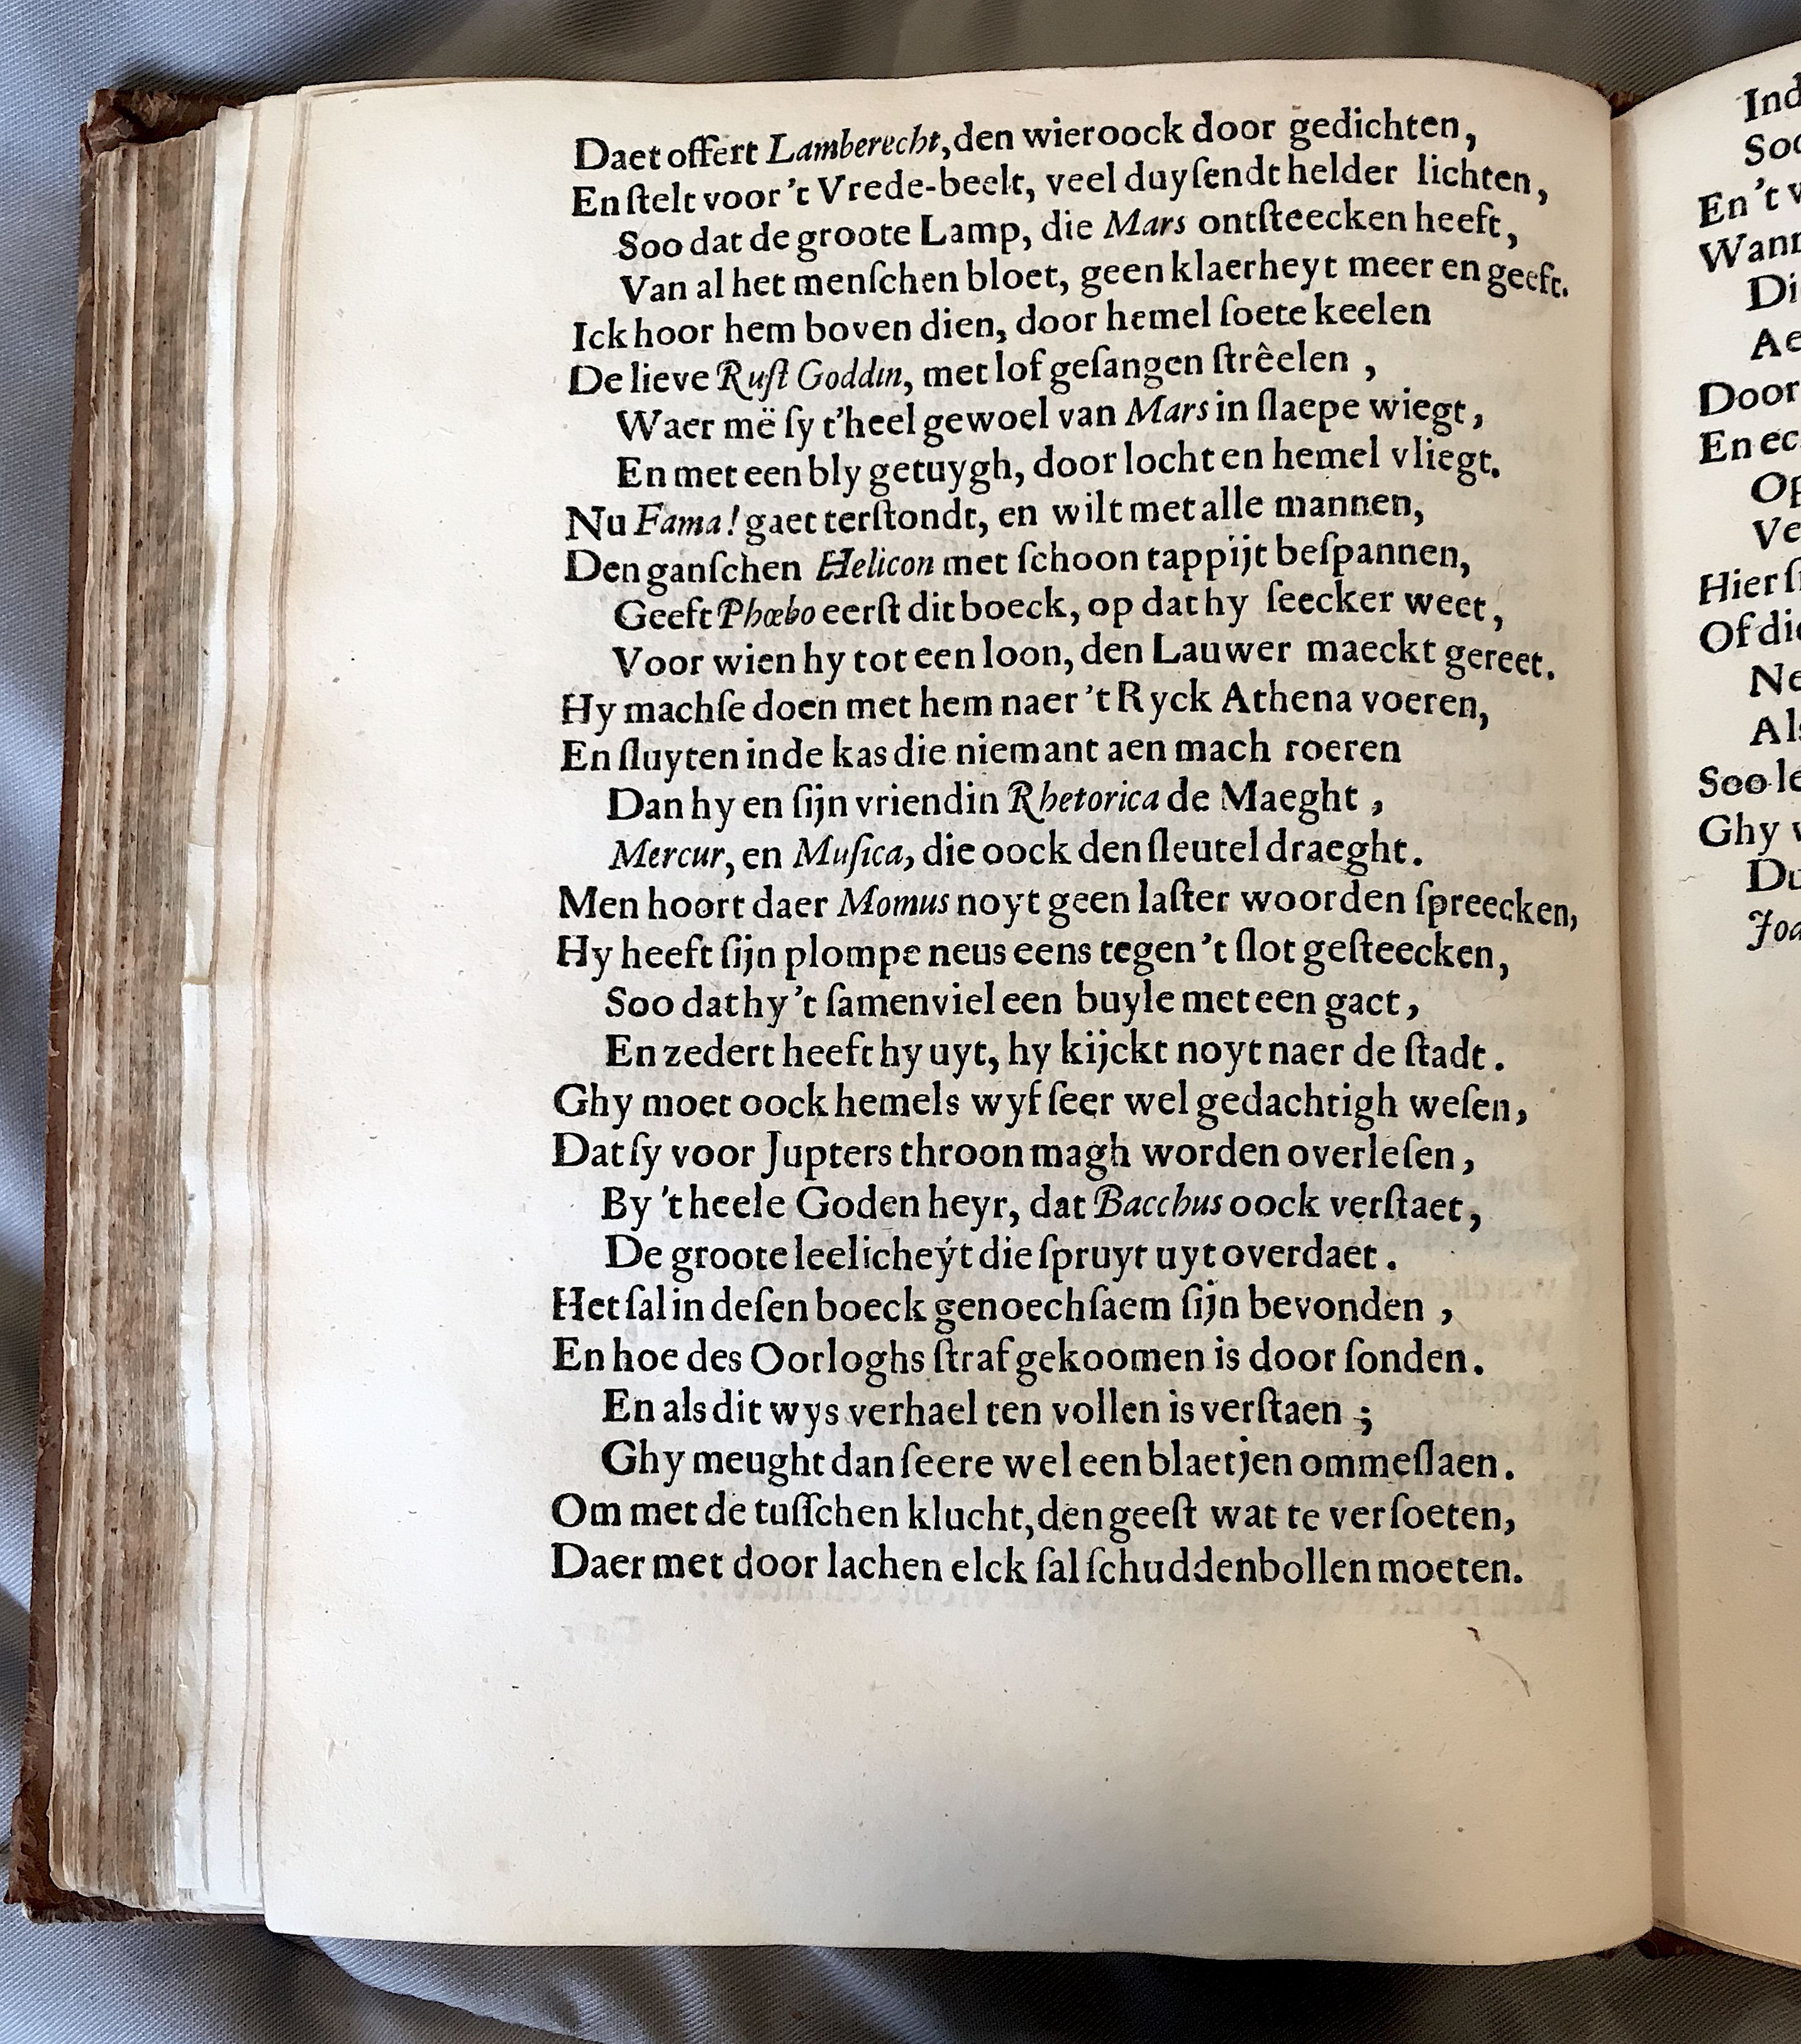 Daet offert Lamberecht, den wieroock door gedichten,
En ſtelt voor 't Vrede-beelt, veel duyſendt helder lichten,
Soo dat de groote Lamp, die Mars ontſteecken heeft,
Van al het menſchen bloet, geen klaerheyt meer en geeft.
Ick hoor hem boven dien, door hemel ſoete keelen
De lieve Ruſt Goddin, met lof geſangen ſtrêelen,
Waer më ſy t'heel gewoel van Mars in ſlaepe wiegt,
En met een bly getuygh, door locht en hemel vliegt.
Nu Fama! gaet terſtondt, en wilt met alle mannen,
Den ganſchen Helicon met ſchoon tappijt beſpannen,
Geeft Phœbo eerſt dit boeck, op dat hy ſeecker weet,
Voor wien hy tot een loon, den Lauwer maeckt gereet.
Hy machſe doen met hem naer 't Ryck Athena voeren,
En ſluyten inde kas die niemant aen mach roeren
Dan hy en ſijn vriendin Rhetorica de Maeght,
Mercur, en Muſica, die oock den ſleutel draeght.
Men hoort daer Momus noyt geen laſter woorden ſpreecken,
Hy heeft ſijn plompe neus eens tegen 't ſlot geſteecken,
Soo dat hy 't ſamen viel een buyle met een gact,
En zedert heeft hy uyt, hy kijckt noyt naer de ſtadt.
Ghy moet oock hemels wyf ſeer wel gedachtigh weſen,
Dat ſy voor Jupters throon magh worden overleſen,
By 't heele Goden heyr, dat Bacchus oock verſtaet,
De groote leelicheyt die ſpruyt uyt overdaet.
Het ſal in deſen boeck genoechſaem ſijn bevonden,
En hoe des Oorloghs ſtraf gekoomen is door ſonden.
En als dit wys verhael ten vollen is verſtaen;
Ghy meught dan ſeere wel een blaetjen ommeſlaen.
Om met de tuſſchen klucht, den geeſt wat te verſoeten,
Daer met door lachen elck ſal ſchuddenbollen moeten.
Ind
Soo
En 't v
Wann
Di
Ae
Door
En ec
Op
Ve
Hier ſi
Of die
Ne
Als
Soo le
Ghy v
Du
Joa